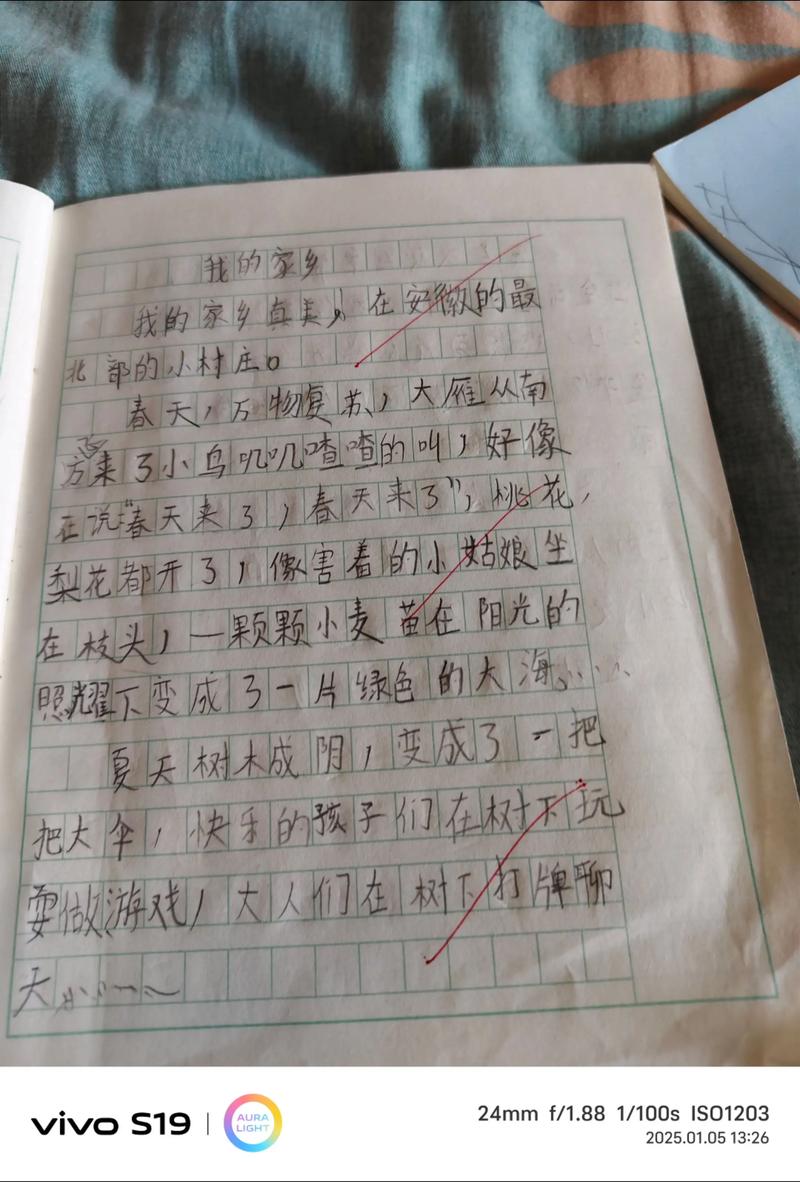 我的家乡
我的家乡真美，在安徽的最
北部的小村庄。
春天，万物复苏，大雁从南
飞
方来了小鸟叽叽喳喳的叫，好像
在说：“春天来了，春天来了”，桃花，
梨花都开了，像害着的小姑娘坐
在枝头，一颗颗小麦苗在阳光的
照耀下变成了一片绿色的大海……
夏天树木成阴，变成了一把
把大伞，快乐的孩子们在树下玩
耍做游戏，大人们在树下打牌聊
天……
vivo S19
AURA LIGHT
24mm f/1.88 1/100s ISO1203
2025.01.05 13:26